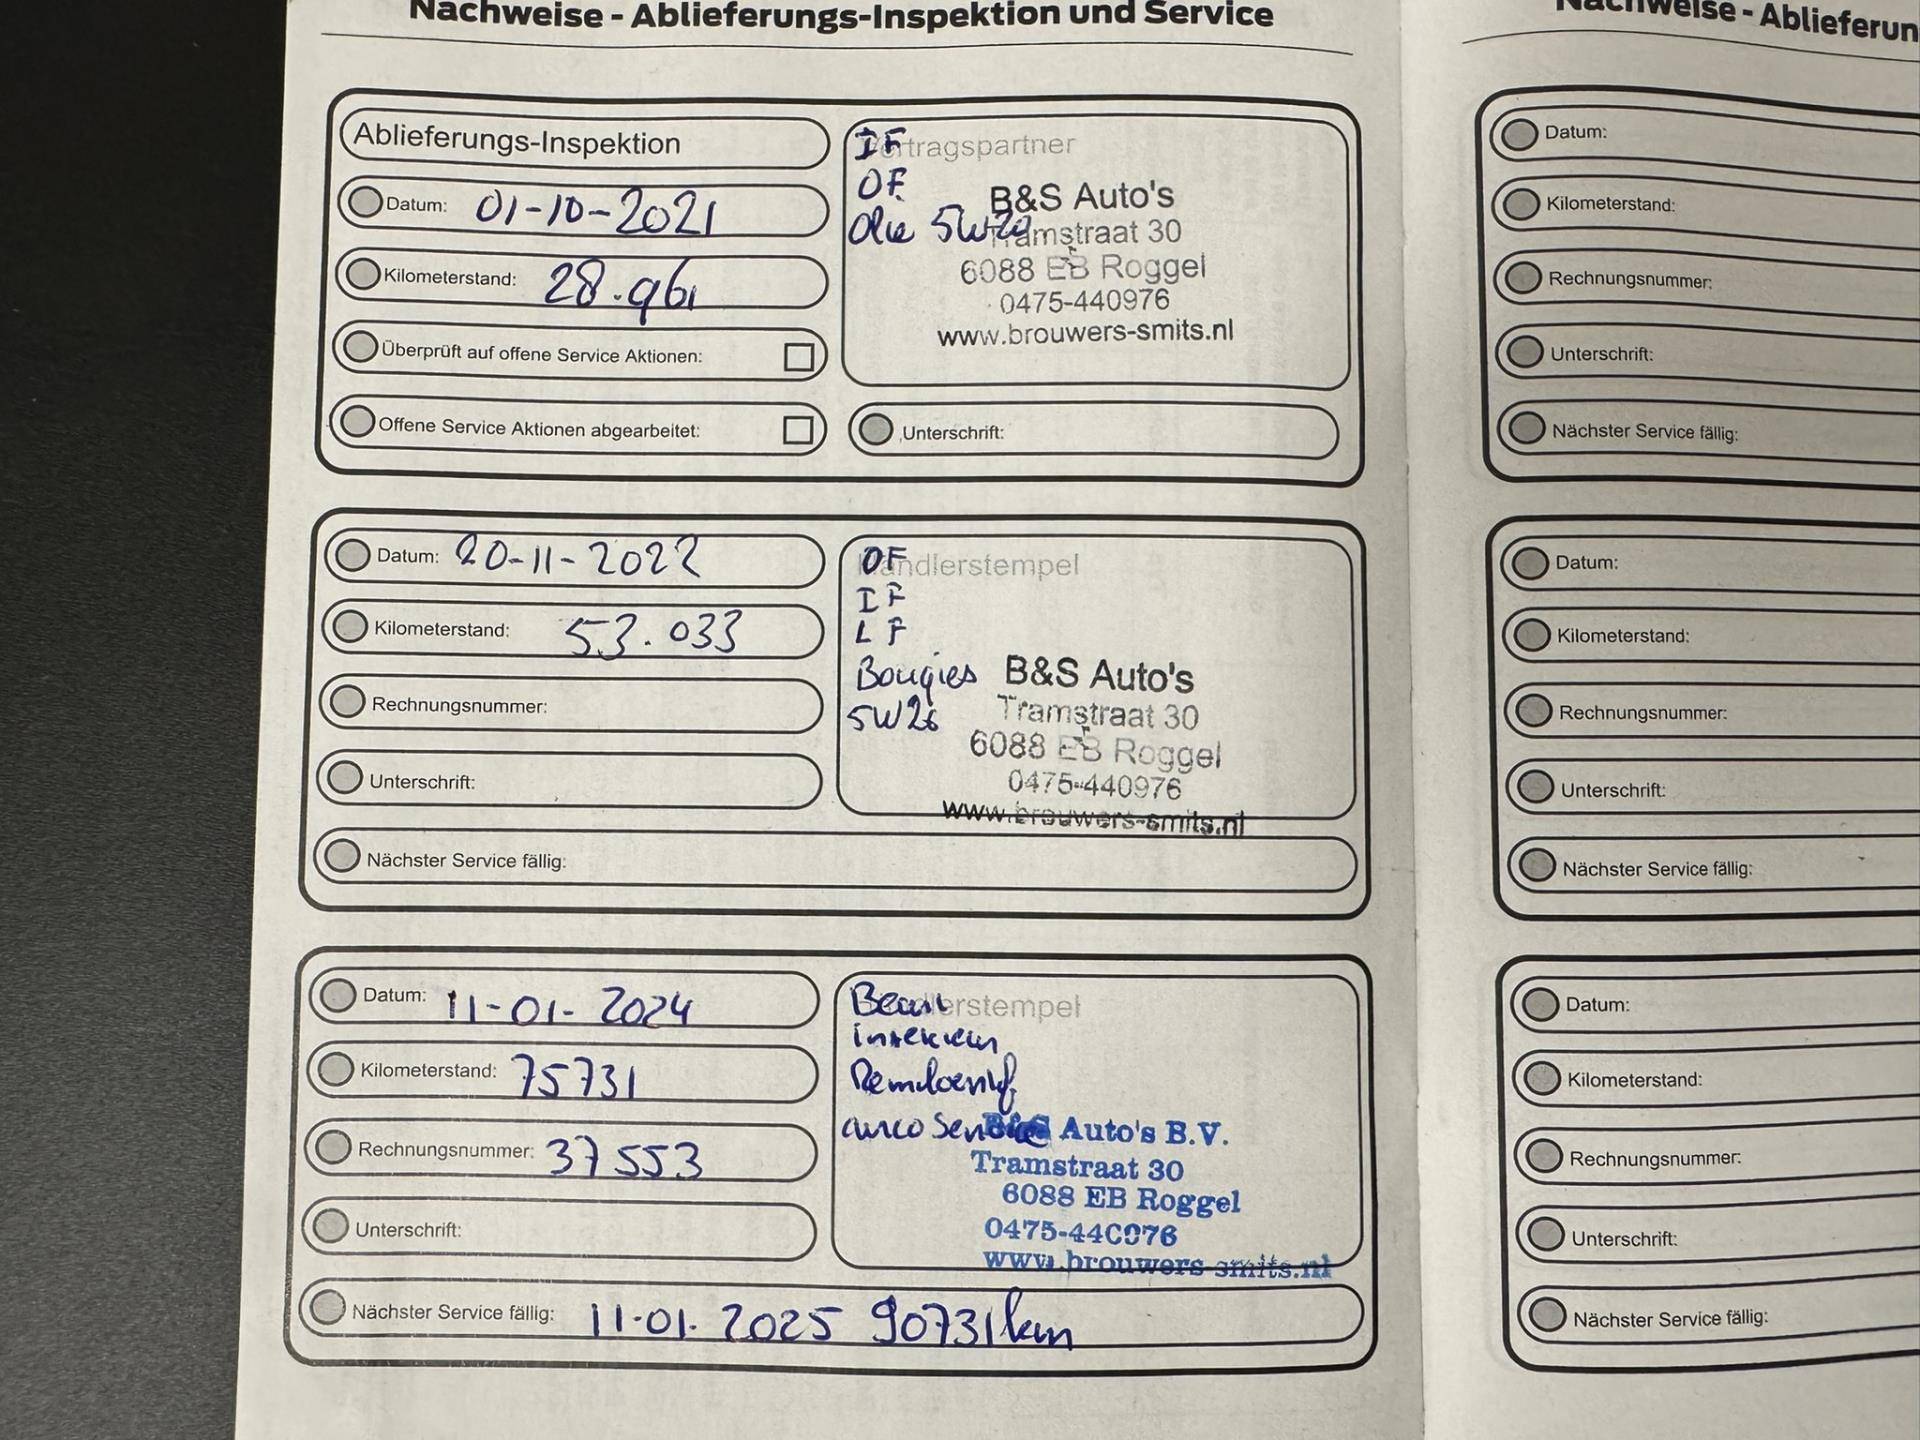 Nachweise - Ablieferungs-Inspektion und Service
Ablieferungs-Inspektion
Datum: 01-10-2021
Kilometerstand: 28.961
Überprüft auf offene Service Aktionen:
Offene Service Aktionen abgearbeitet:
Vertragspartner
IF
OF
Olie 5W20
B&S Auto's
Tramstraat 30
6088 EB Roggel
0475-440976
www.brouwers-smits.nl
Unterschrift:
Datum: 20-11-2022
Kilometerstand: 53.033
Rechnungsnummer:
Unterschrift:
Händlerstempel
OF
IF
LF
Bougies
5W20
B&S Auto's
Tramstraat 30
6088 EB Roggel
0475-440976
www.brouwers-smits.nl
Nächster Service fällig:
Datum: 11-01-2024
Kilometerstand: 75731
Rechnungsnummer: 37553
Unterschrift:
Händlerstempel
Beurt
interieur
Remvloeistof
airco Service
B&S Auto's B.V.
Tramstraat 30
6088 EB Roggel
0475-440976
www.brouwers-smits.nl
Nächster Service fällig: 11-01-2025 90731km
Nachweise - Ablieferun
Datum:
Kilometerstand:
Rechnungsnummer:
Unterschrift:
Nächster Service fällig:
Datum:
Kilometerstand:
Rechnungsnummer:
Unterschrift:
Nächster Service fällig:
Datum:
Kilometerstand:
Rechnungsnummer:
Unterschrift:
Nächster Service fällig: